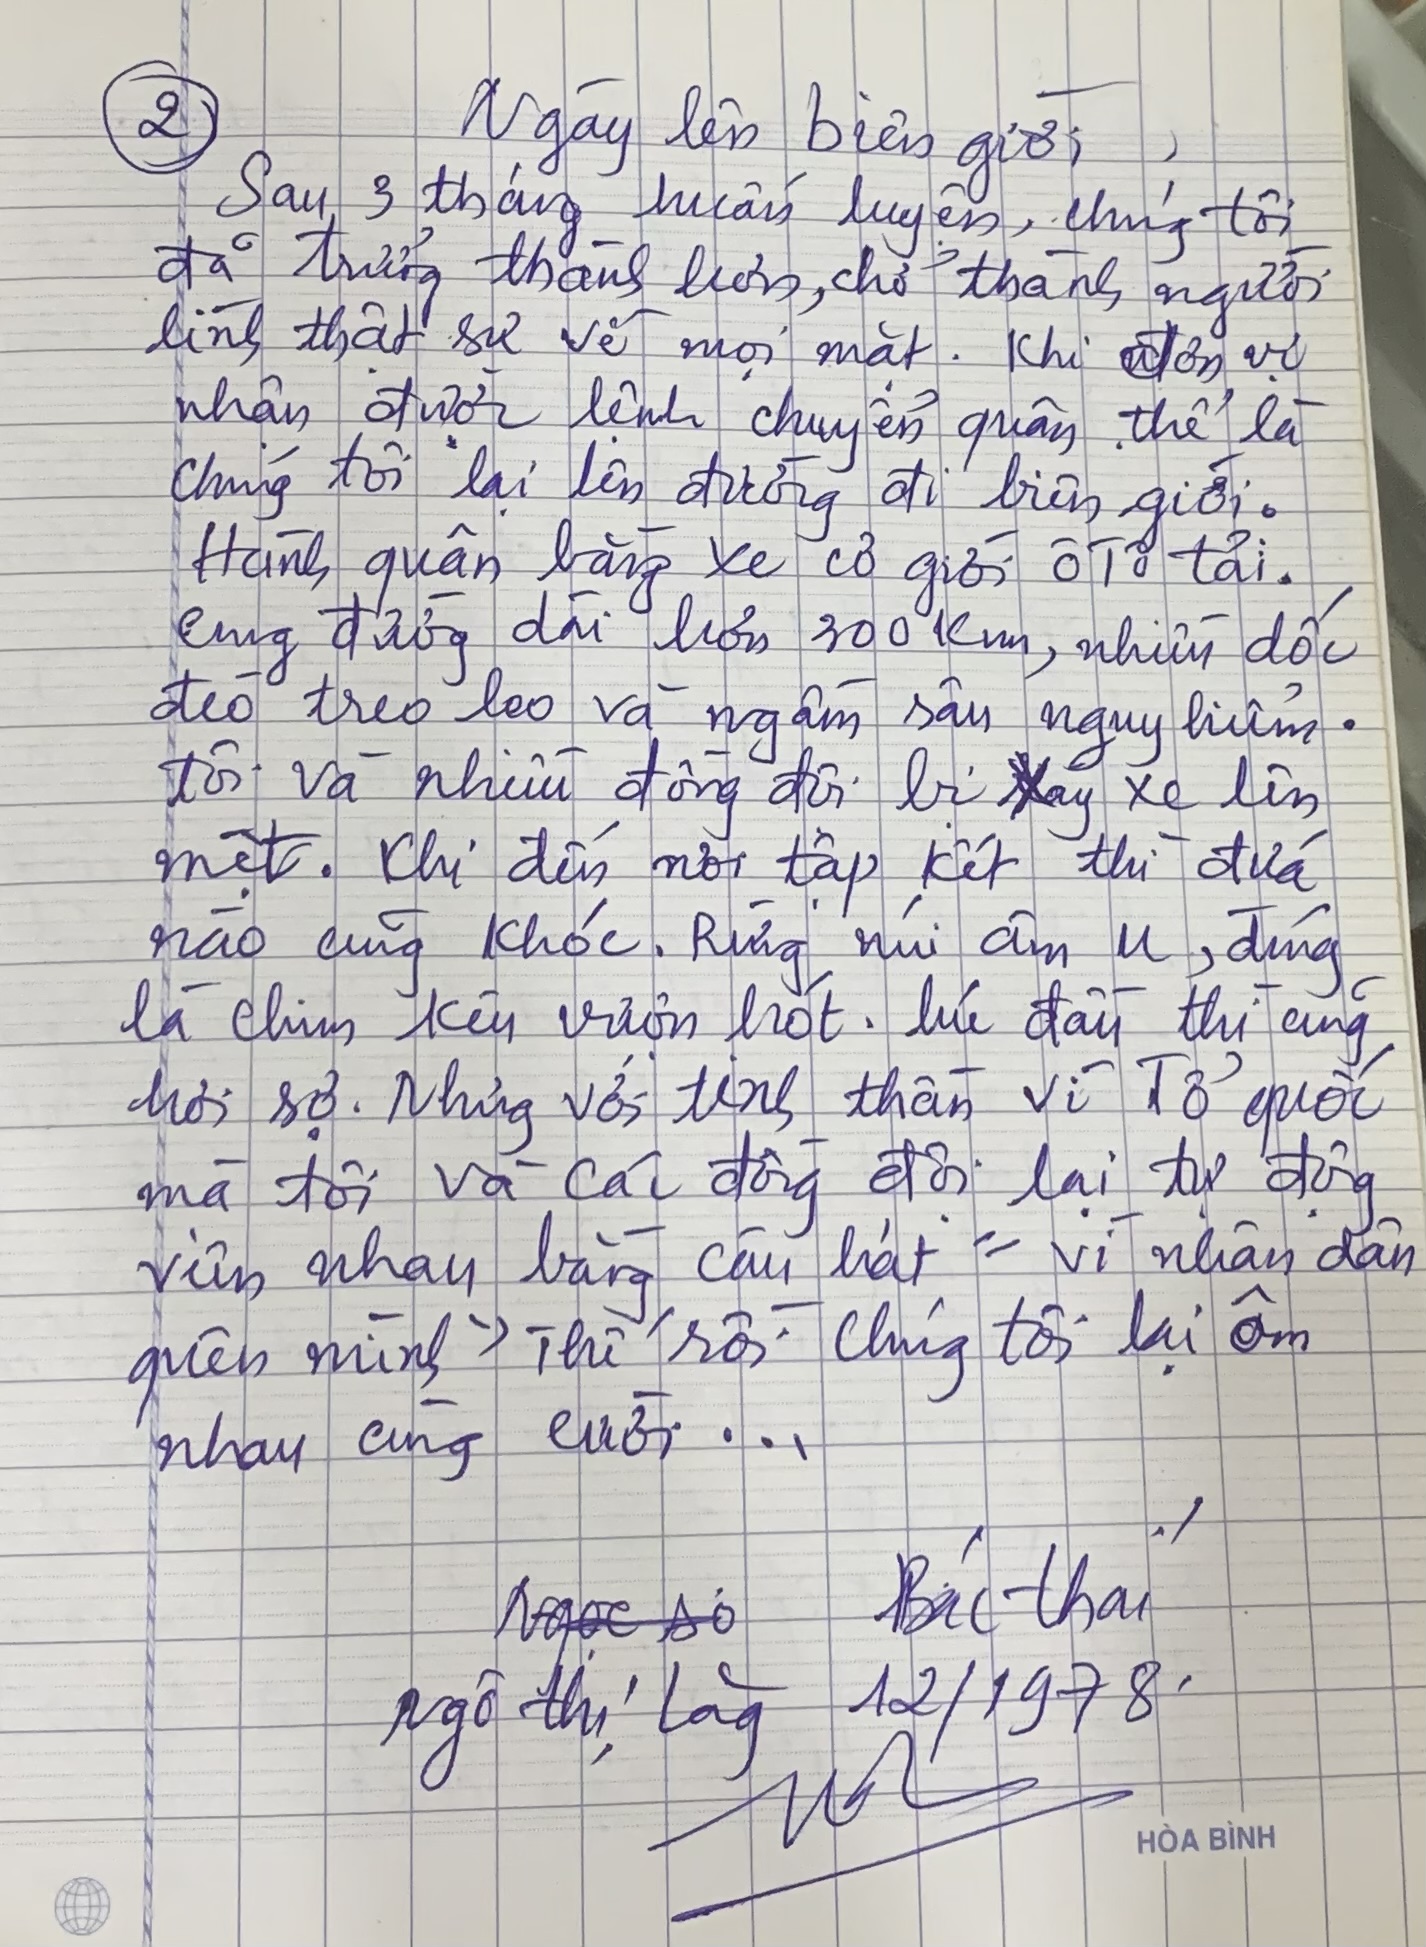 2
Ngày lên biên giới
Sau 3 tháng huấn luyện, chúng tôi
đã trưởng thành hơn, chở thành người
lính thật sự về mọi mặt. Khi đơn vị
nhận được lệnh chuyển quân thế là
chúng tôi lại lên đường đi biên giới.
Hành quân bằng xe cơ giới ô tô tải.
Cung đường dài hơn 300 Km, nhiều dốc
đèo treo leo và ngầm sâu nguy hiểm.
tôi và nhiều đồng đội bị xay xe lên
mệt. Khi đến nơi tập kết thì đứa
nào cũng khóc. Rừng núi âm u, đúng
là chim kêu vượn hót. lúc đầu thì cũng
hơi sợ. Nhưng với tinh thần vì Tổ quốc
mà tôi và các đồng đội lại tự động
viên nhau bằng câu hát " vì nhân dân
quên mình" Thế rồi chúng tôi lại ôm
nhau cùng cười...
Bắc thái
Ngô thị Lăng 12/1978.
HÒA BÌNH